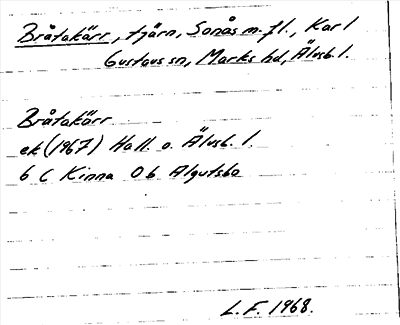 Bråtakärr, tjärn, Sonås m.fl., Karl
Gustavs sn, Marks hd, Älvsb. l.
Bråtakärr
ek (1967) Hall. o. Älvsb. l.
6 C Kinna 0 b Algutsbo
L.F. 1968.